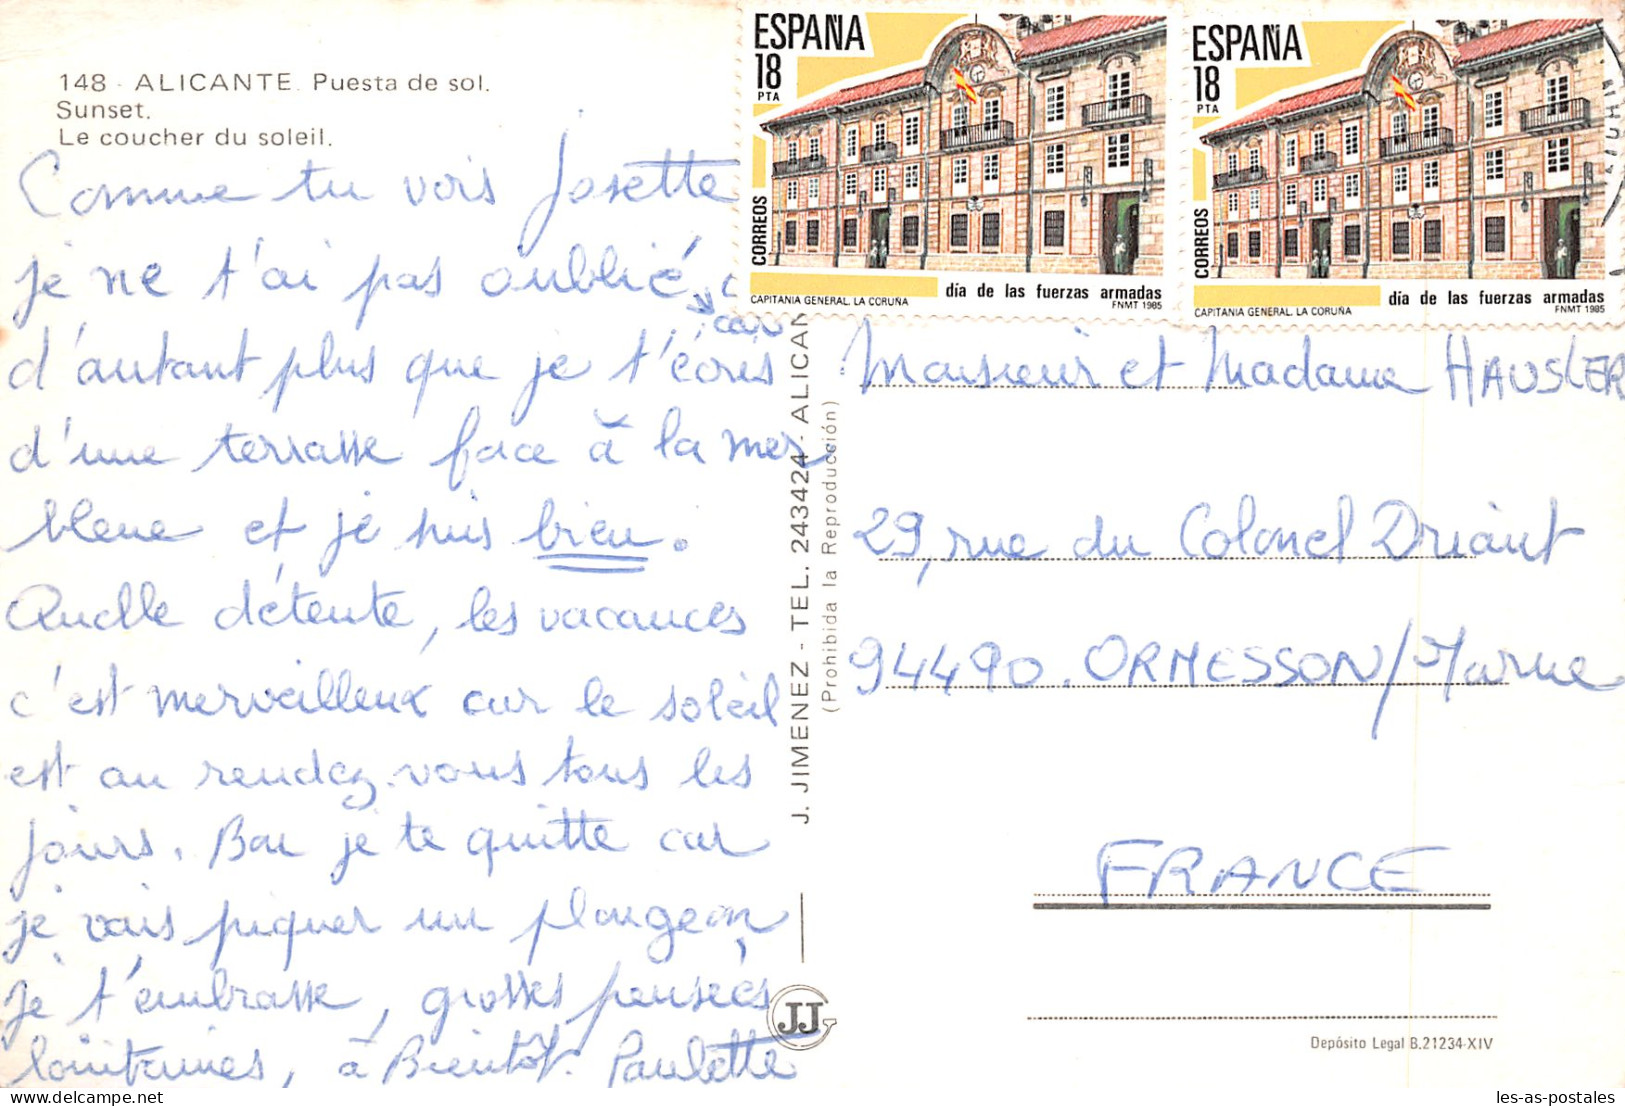 148 - ALICANTE. Puesta de sol.
Sunset.
Le coucher du soleil.
Comme tu vois Josette
je ne t'ai pas oublié,
car
d'autant plus que je t'écris
d'une terrasse face à la mer
bleue et je suis bien.
Quelle détente, les vacances
c'est merveilleux car le soleil
est au rendez-vous tous les
jours. Bon je te quitte car
je vais piquer un plongeon,
je t'embrasse, grosses pensées
lointaines, à Bientôt. Paulette
J. JIMENEZ - TEL. 243424 - ALICAN
(Prohibida la Reproducción)
JJ
ESPAÑA
18
PTA
CORREOS
CAPITANIA GENERAL. LA CORUÑA
día de las fuerzas armadas
FNMT 1985
ESPAÑA
18
PTA
CORREOS
CAPITANIA GENERAL. LA CORUÑA
día de las fuerzas armadas
FNMT 1985
Monsieur et Madame HAUSLER
29, rue du Colonel Driant
94490. ORMESSON/Marne
FRANCE
Depósito Legal B.21234-XIV
les-as-postales